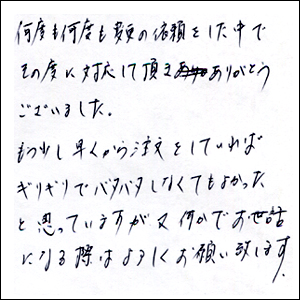 何度も何度も額の依頼をした中で
その度に対応して頂きありがとう
ございました。
もう少し早くから注文をしていれば
ギリギリでバタバタしなくてもよかった
と思っていますが又何かでお世話
になる際はよろしくお願い致します.